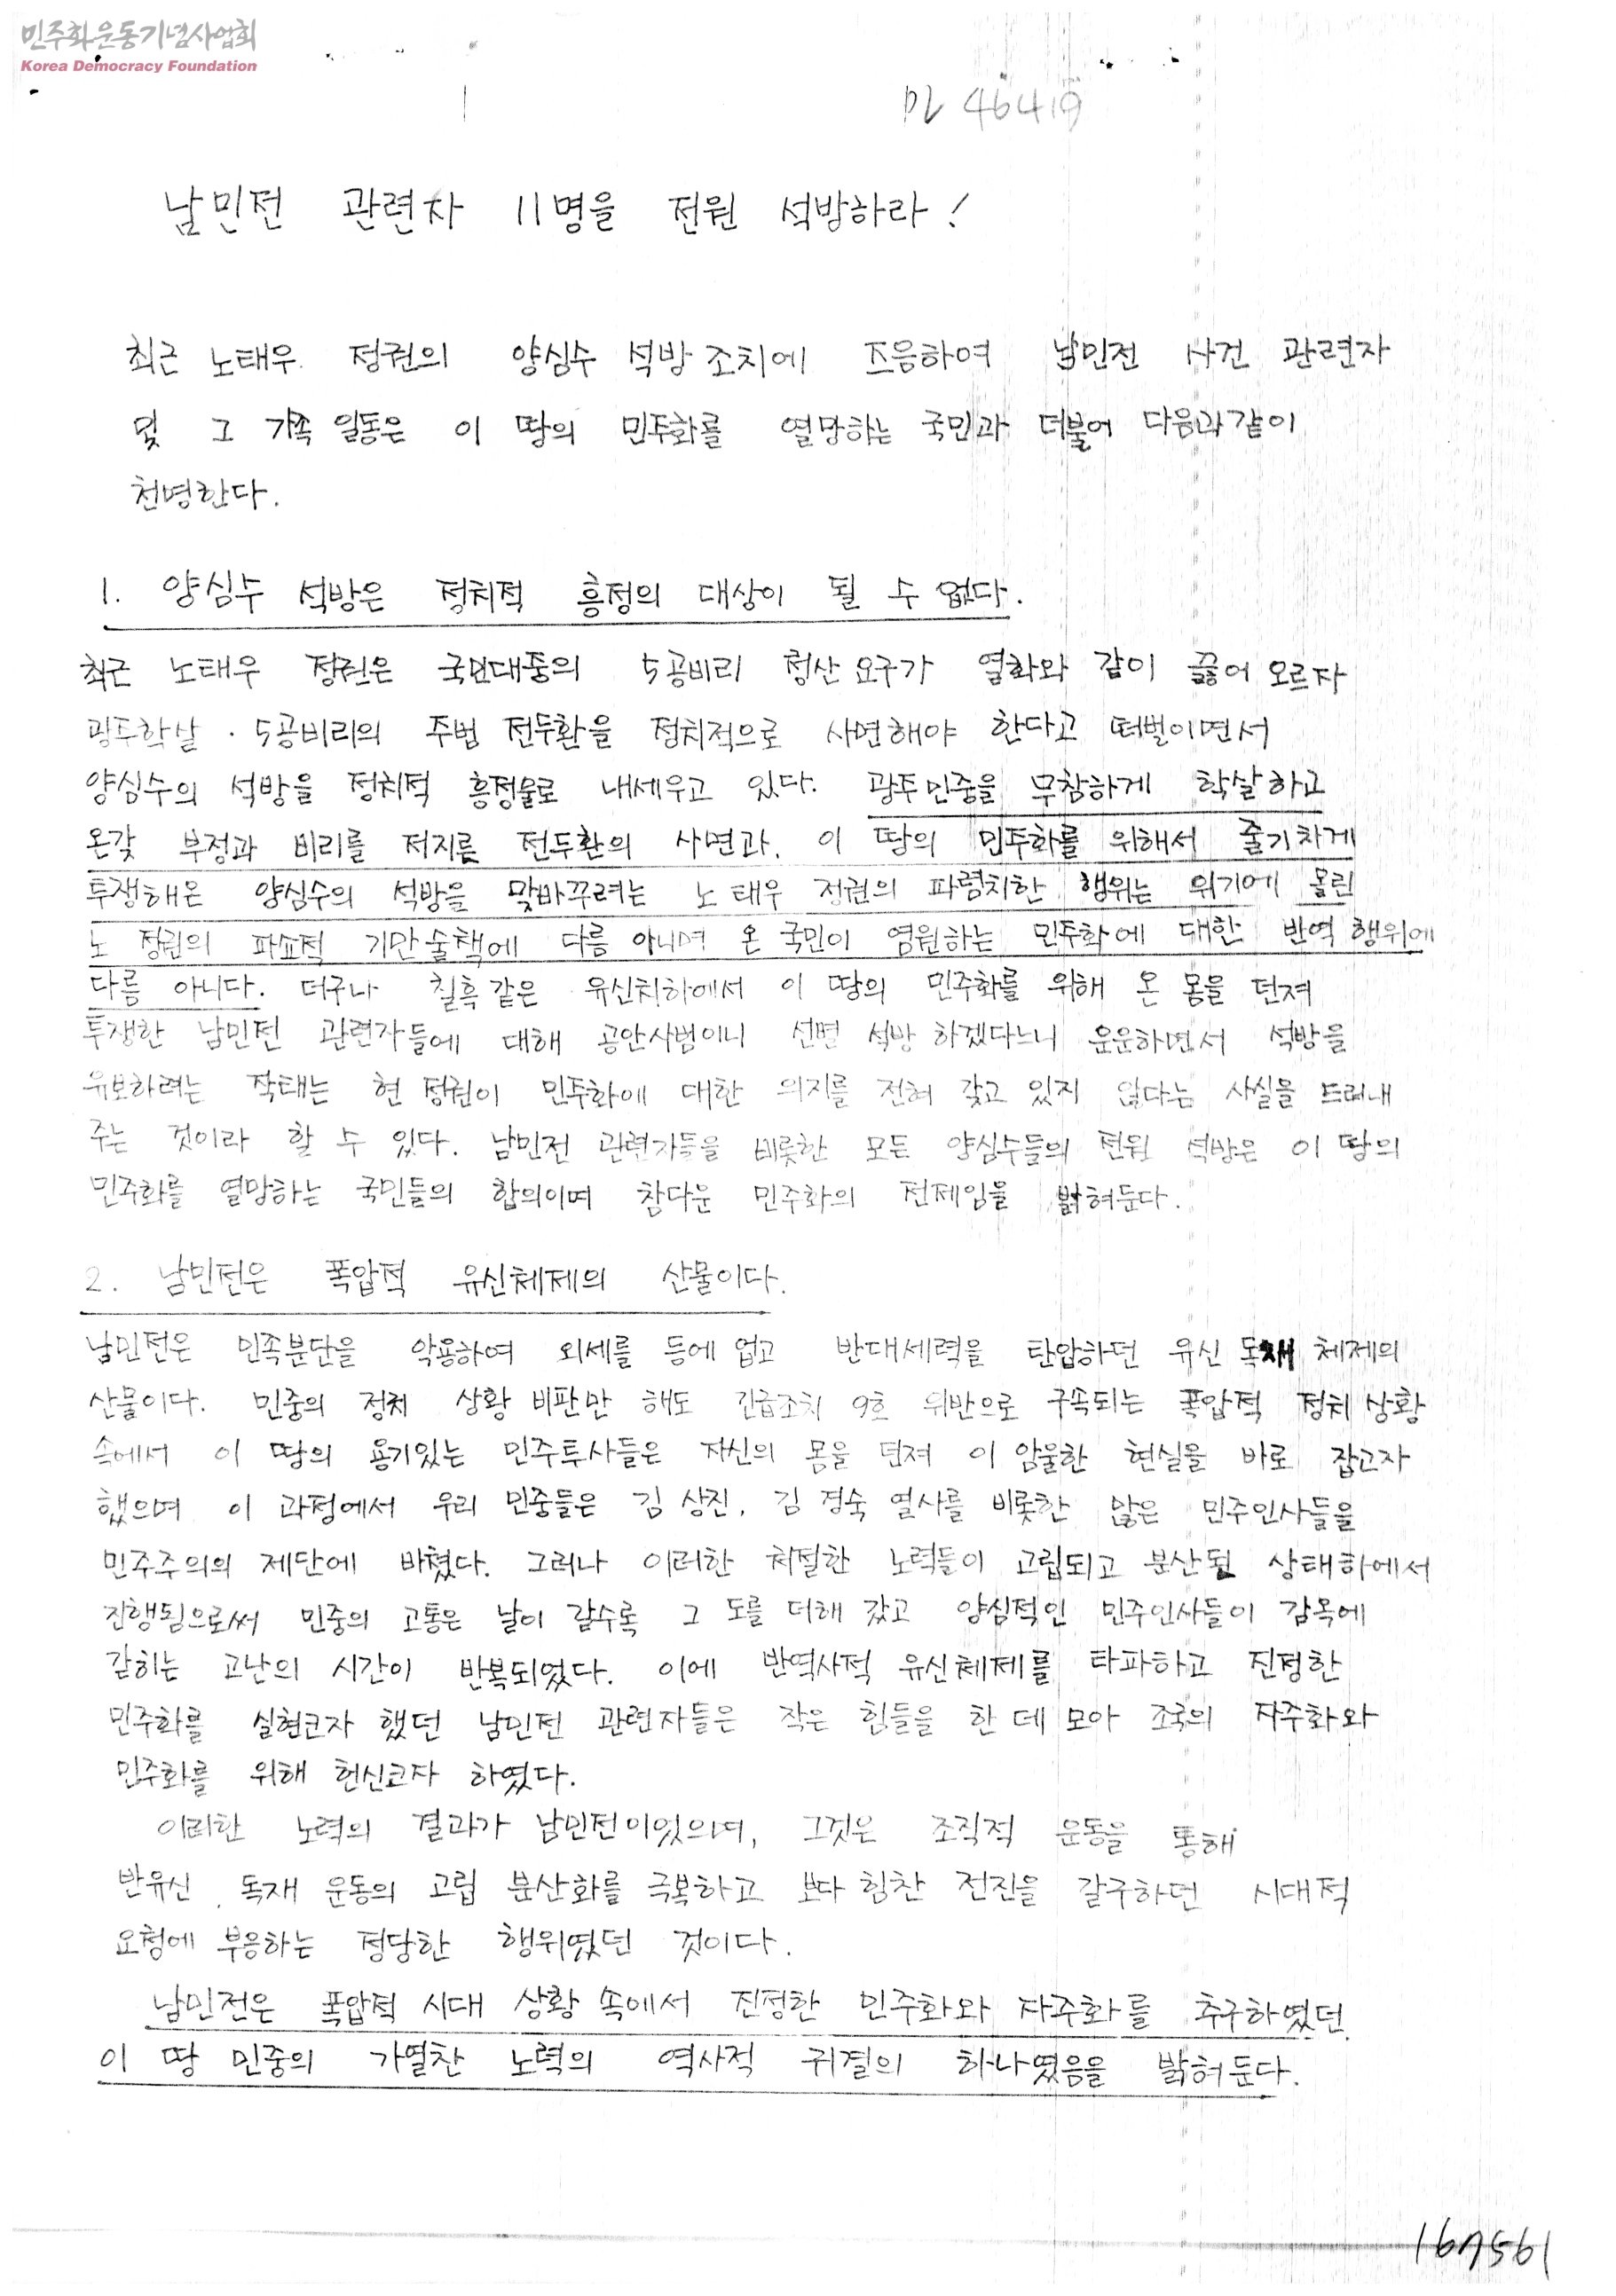 민주화운동기념사업회
Korea Democracy Foundation
46419
남민전 관련자 11명을 전원 석방하라!
최근 노태우 정권의 양심수 석방 조치에 즈음하여 남민전 사건 관련자
및 그 가족 일동은 이 땅의 민주화를 열망하는 국민과 더불어 다음과 같이
천명한다.
1. 양심수 석방은 정치적 흥정의 대상이 될 수 없다.
최근 노태우 정권은 국민대중의 5공비리 청산 요구가 열화와 같이 끓어 오르자
광주학살 · 5공비리의 주범 전두환을 정치적으로 사면해야 한다고 떠벌이면서
양심수의 석방을 정치적 흥정물로 내세우고 있다. 광주민중을 무참하게 학살하고
온갖 부정과 비리를 저지른 전두환의 사면과, 이 땅의 민주화를 위해서 줄기차게
투쟁해온 양심수의 석방을 맞바꾸려는 노태우 정권의 파렴치한 행위는 위기에 몰린
노 정권의 파쇼적 기만술책에 다름 아니며 온 국민이 염원하는 민주화에 대한 반역 행위에
다름 아니다. 더구나 칠흑같은 유신치하에서 이 땅의 민주화를 위해 온 몸을 던져
투쟁한 남민전 관련자들에 대해 공안사범이니 선별 석방 하겠다느니 운운하면서 석방을
유보하려는 작태는 현 정권이 민주화에 대한 의지를 전혀 갖고 있지 않다는 사실을 드러내
주는 것이라 할 수 있다. 남민전 관련자들을 비롯한 모든 양심수들의 전원 석방은 이 땅의
민주화를 열망하는 국민들의 합의이며 참다운 민주화의 전제임을 밝혀둔다.
2. 남민전은 폭압적 유신체제의 산물이다.
남민전은 민족분단을 악용하여 외세를 등에 업고 반대세력을 탄압하던 유신 독재 체제의
산물이다. 민중의 정치 상황 비판만 해도 긴급조치 9호 위반으로 구속되는 폭압적 정치 상황
속에서 이 땅의 용기있는 민주투사들은 자신의 몸을 던져 이 암울한 현실을 바로 잡고자
했으며 이 과정에서 우리 민중들은 김 상진, 김 경숙 열사를 비롯한 많은 민주인사들을
민주주의의 제단에 바쳤다. 그러나 이러한 처절한 노력들이 고립되고 분산된 상태하에서
진행됨으로써 민중의 고통은 날이 갈수록 그 도를 더해 갔고 양심적인 민주인사들이 감옥에
갇히는 고난의 시간이 반복되었다. 이에 반역사적 유신체제를 타파하고 진정한
민주화를 실현코자 했던 남민전 관련자들은 작은 힘들을 한 데 모아 조국의 자주화와
민주화를 위해 헌신코자 하였다.
이러한 노력의 결과가 남민전이었으며, 그것은 조직적 운동을 통해
반유신 독재 운동의 고립 분산화를 극복하고 보다 힘찬 전진을 갈구하던 시대적
요청에 부응하는 정당한 행위였던 것이다.
남민전은 폭압적 시대 상황 속에서 진정한 민주화와 자주화를 추구하였던
이 땅 민중의 가열찬 노력의 역사적 귀결의 하나였음을 밝혀둔다.